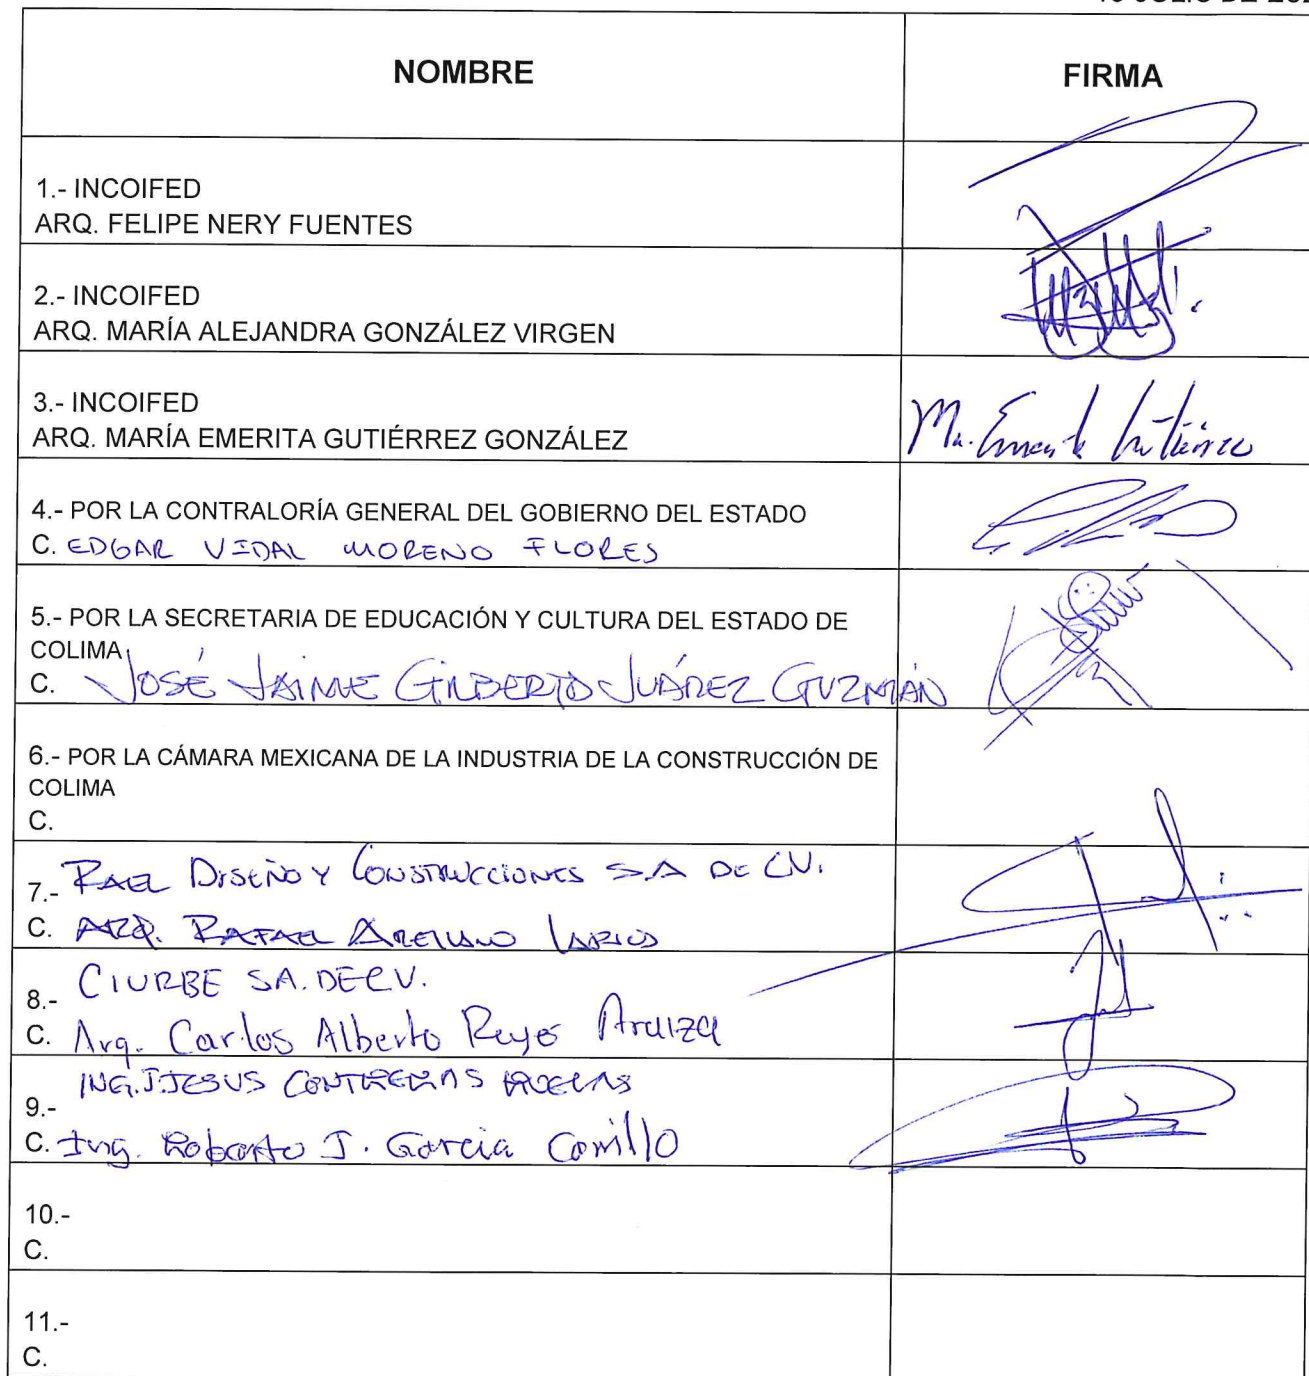 JULIO DE
NOMBRE
FIRMA
1.- INCOIFED
ARQ. FELIPE NERY FUENTES
2.- INCOIFED
ARQ. MARÍA ALEJANDRA GONZÁLEZ VIRGEN
3.- INCOIFED
ARQ. MARÍA EMERITA GUTIÉRREZ GONZÁLEZ
Ma. Emerita Gutiérrez
4.- POR LA CONTRALORÍA GENERAL DEL GOBIERNO DEL ESTADO
C. EDGAR VIDAL MORENO FLORES
5.- POR LA SECRETARIA DE EDUCACIÓN Y CULTURA DEL ESTADO DE
COLIMA
C. JOSÉ JAIME GILBERTO JUÁREZ GUZMÁN
6.- POR LA CÁMARA MEXICANA DE LA INDUSTRIA DE LA CONSTRUCCIÓN DE
COLIMA
C.
7.- RAEL DISEÑO Y CONSTRUCCIONES S.A DE C.V.
C. ARQ. RAFAEL ARELLANO LARIOS
8.- CIURBE SA. DE C.V.
C. Arq. Carlos Alberto Reyes Araiza
9.- ING. J. JESUS CONTRERAS
C. Ing. Roberto J. Garcia Carrillo
10.-
C.
11.-
C.